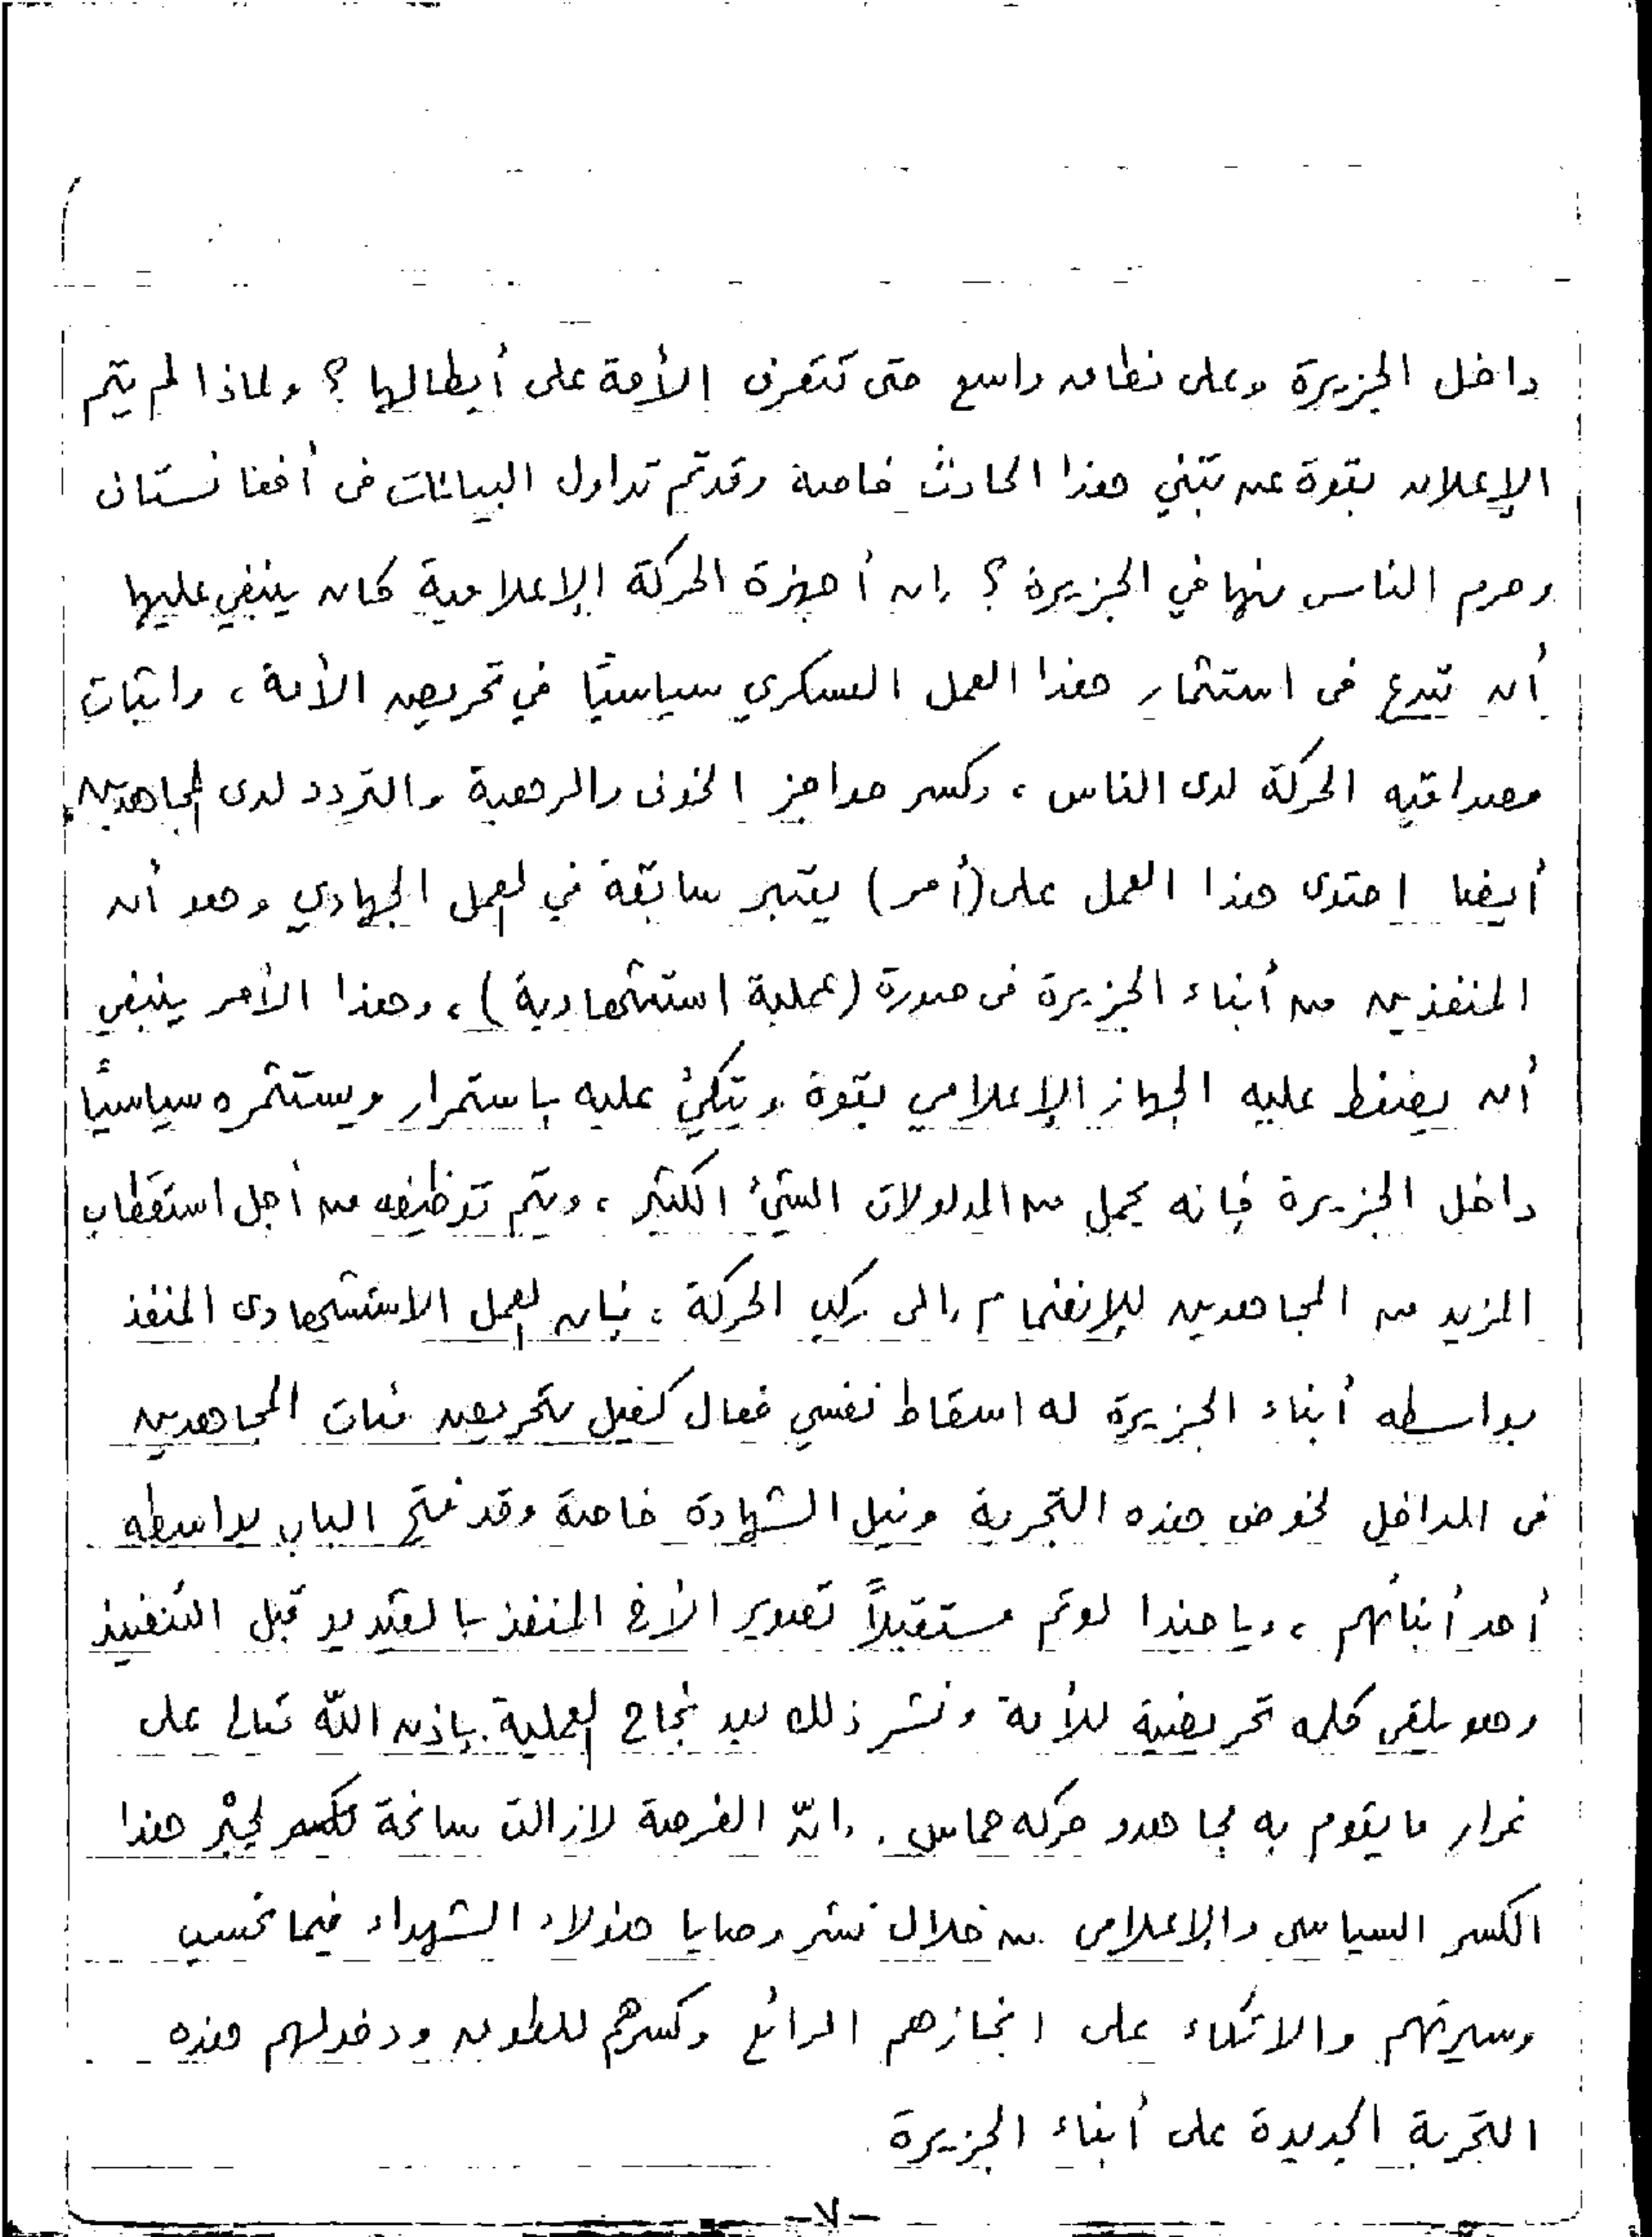 داخل الجزيرة وعلى نطاق واسع حتى تتعرف الأمة على أبطالها ؟ ولماذا لم يتم
الإعلان بقوة عن تبني هذا الحادث خاصة وقد تم تداول البيانات فى أفغانستان
وحرم الناس منها في الجزيرة ؟ إن أجهزة الحركة الإعلامية كان ينبغي عليها
أن تبدع فى استثمار هذا العمل العسكري سياسيًا في تحريض الأمة ، واثبات
مصداقيه الحركة لدى الناس ، وكسر حواجز الخوف والرهبة والتردد لدى المجاهدين.
أيضا احتوى هذا العمل على (أمر) يعتبر سابقة في العمل الجهادي وهو أن
المنفذين من أبناء الجزيرة فى صورة (عملية استشهادية) ، وهذا الأمر ينبغي
أن يضغط عليه الجهاز الإعلامي بقوة ويتكئ عليه باستمرار ويستثمره سياسيًا
داخل الجزيرة فإنه يحمل من المدلولات الشئ الكثير ، ويتم توظيفه من أجل استقطاب
المزيد من المجاهدين للإنضمام إلى ركب الحركة ، فإن العمل الاستشهادى المنفذ
بواسطه أبناء الجزيرة له اسقاط نفسي فعال كفيل بتحريض مئات المجاهدين
فى الداخل لخوض هذه التجربة ونيل الشهادة خاصة وقد فتح الباب بواسطه
أحد أبنائهم ، ويا حبذا لو تم مستقبلاً تصوير الأخ المنفذ بالفيديو قبل التنفيذ
وهو يلقى كلمه تحريضية للأمة ونشر ذلك بعد نجاح العملية بإذن اللّه تعالى على
غرار ما يقوم به مجاهدو حركه حماس . وإنّ الفرصة لازالت سانحة لجبْر هذا
الكسر السياسى والإعلامى من خلال نشر وصايا هؤلاء الشهداء فيما نحسب
وسيرتهم والاتكاء على انجازهم الرائع وكسرهم للطوق ودخولهم هذه
التجربة الجديدة على أبناء الجزيرة .
-٧-